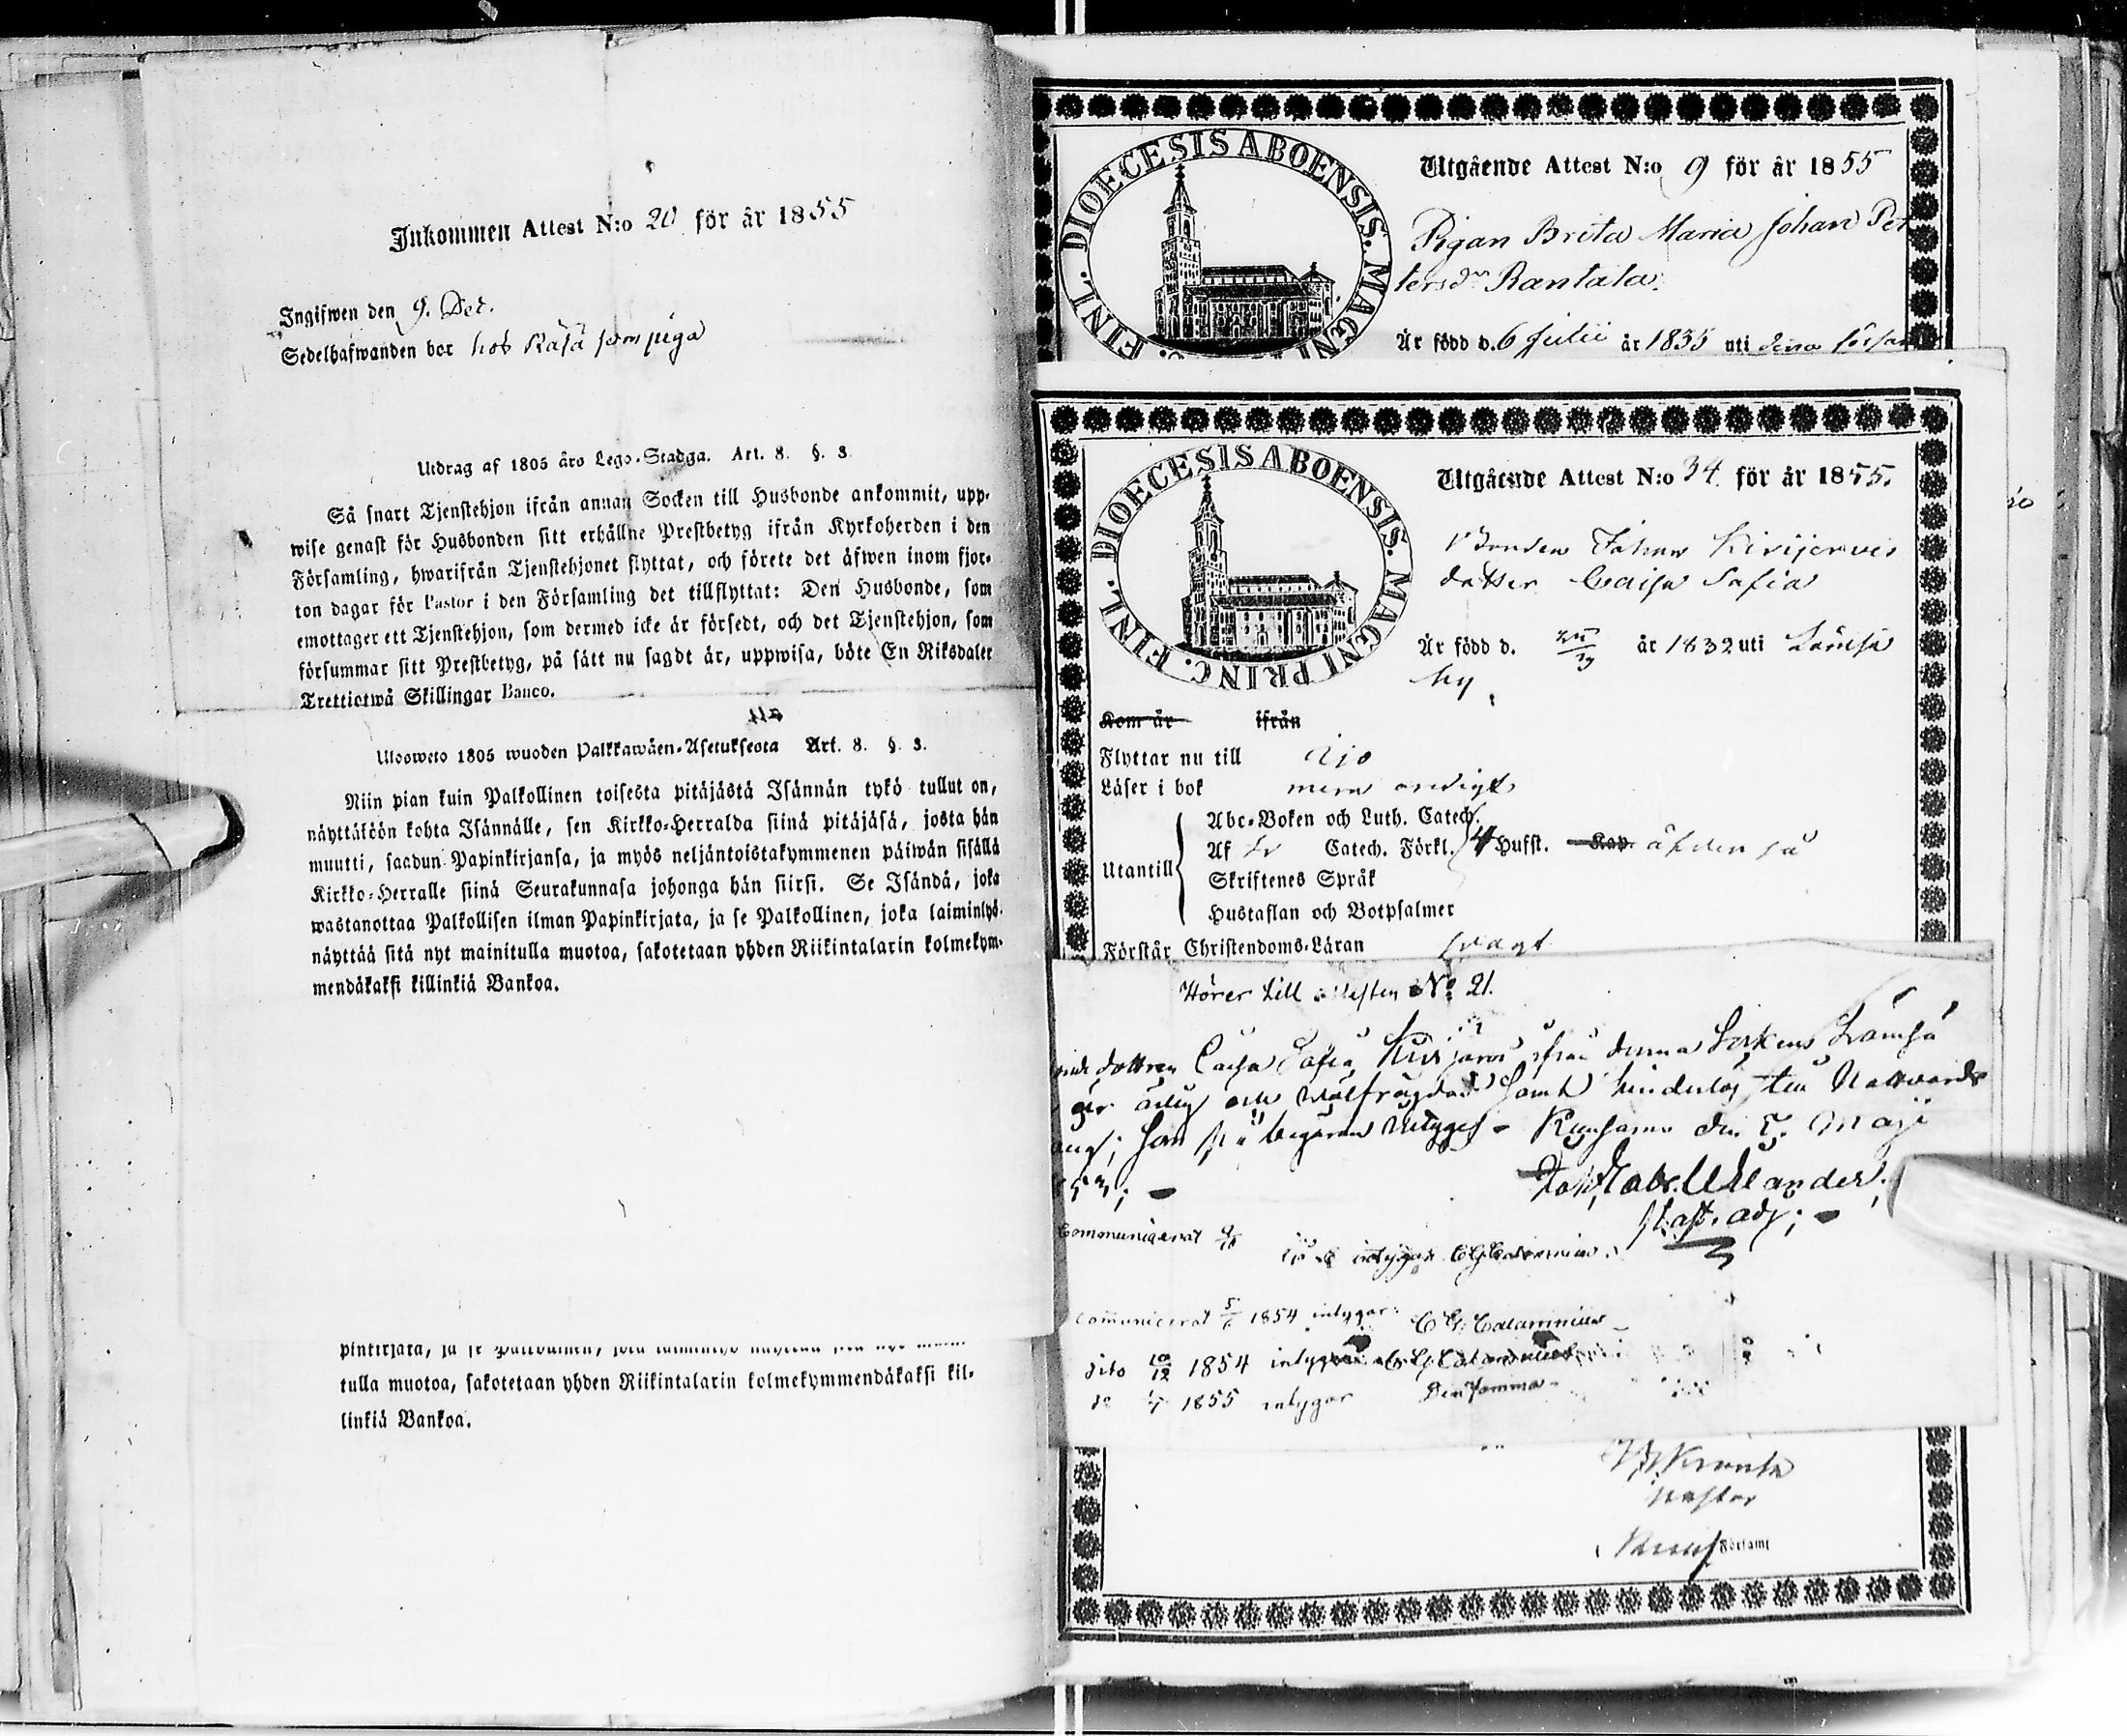 Inkommen Attest N:o 20 för år 1855
Ingifwen den 9. Dec.
Sedelhafwanden bor hos Räsä som piga
Utdrag af 1805 års Lego-Stadga. Art. 8. §. 3.
Så snart Tjenstehjon ifrån annan Socken till Husbonde ankommit, upp-
wise genast för Husbonden sitt erhållne Prestbetyg ifrån Kyrkoherden i den
Församling, hwarifrån Tjenstehjonet flyttat, och förete det äfwen inom fjor-
ton dagar för Pastor i den Församling det tillflyttat: Den Husbonde, som
emottager ett Tjenstehjon, som dermed icke är försedt, och det Tjenstehjon, som
försummar sitt Prestbetyg, på sätt nu sagdt är, uppwisa, böte En Riksdaler
Trettiotwå Skillingar Banco.
Ulosweto 1805 wuoden Palkkawäen-Asetuksesta Art. 8. §. 3.
Niin pian kuin Palkollinen toisesta pitäjästä Isännän tykö tullut on,
näyttäköön kohta Isännälle, sen Kirkko-Herralda siinä pitäjäsä, josta hän
muutti, saadun Papinkirjansa, ja myös neljäntoistakymmenen päiwän sisällä
Kirkko-Herralle siinä Seurakunnasa johonga hän siirsi. Se Isändä, joka
wastanottaa Palkollisen ilman Papinkirjata, ja se Palkollinen, joka laiminlyö
näyttää sitä nyt mainitulla muotoa, sakotetaan yhden Riikintalarin kolmekym-
mendäkaksi killinkiä Bankoa.
pinkirjata, ja se Palkollinen, joka laiminlyö näyttää sitä nyt
tulla muotoa, sakotetaan yhden Riikintalarin kolmekymmendäkaksi kil-
linkiä Bankoa.
DIOECESIS ABOENSIS. MAGNI FINL.
Utgående Attest N:o 9 för år 1855
Pigan Brita Maria Johan Pet
tersdr Rantala.
Är född d. 6 Julii år 1835 uti denna försam
DIOECESIS ABOENSIS. MAGNI PRINC. FINL.
Utgående Attest N:o 34 för år 1855.
Bonden Johan Kivijervis
dotter Caisa Safia
Är född d. år 1832 uti Lämsä
by
Kom år ifrån
Flyttar nu till Ijo
Läser i bok
Utantill
Abc-Boken och Luth. Catech.
Af Catech. Förkl. 4 Hufst. Kap.
Skriftenes Språk
Hustaflan och Botpsalmer
Förstår Christendoms-Läran svagt
Hörer till attesten No 21.
dottren Caisa Safia ifrån denna Sockens Lämsä
är ärlig och wälfrägdad samt hinderlös till Nattwards
som på begäran betygas - Kuusamo den Maji
Uhlander.
Past. adj; -
Communicerat intygar
Communicerat 5 1854 intygar: C G Calamnius
dito 10/12 1854 intygar C G Calamnius
do 1855 intygar Densamma
Pastor
Församl